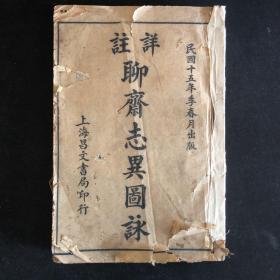 民國十五年季春月出版
詳註
聊齋志異圖詠
上海昌文書局印行